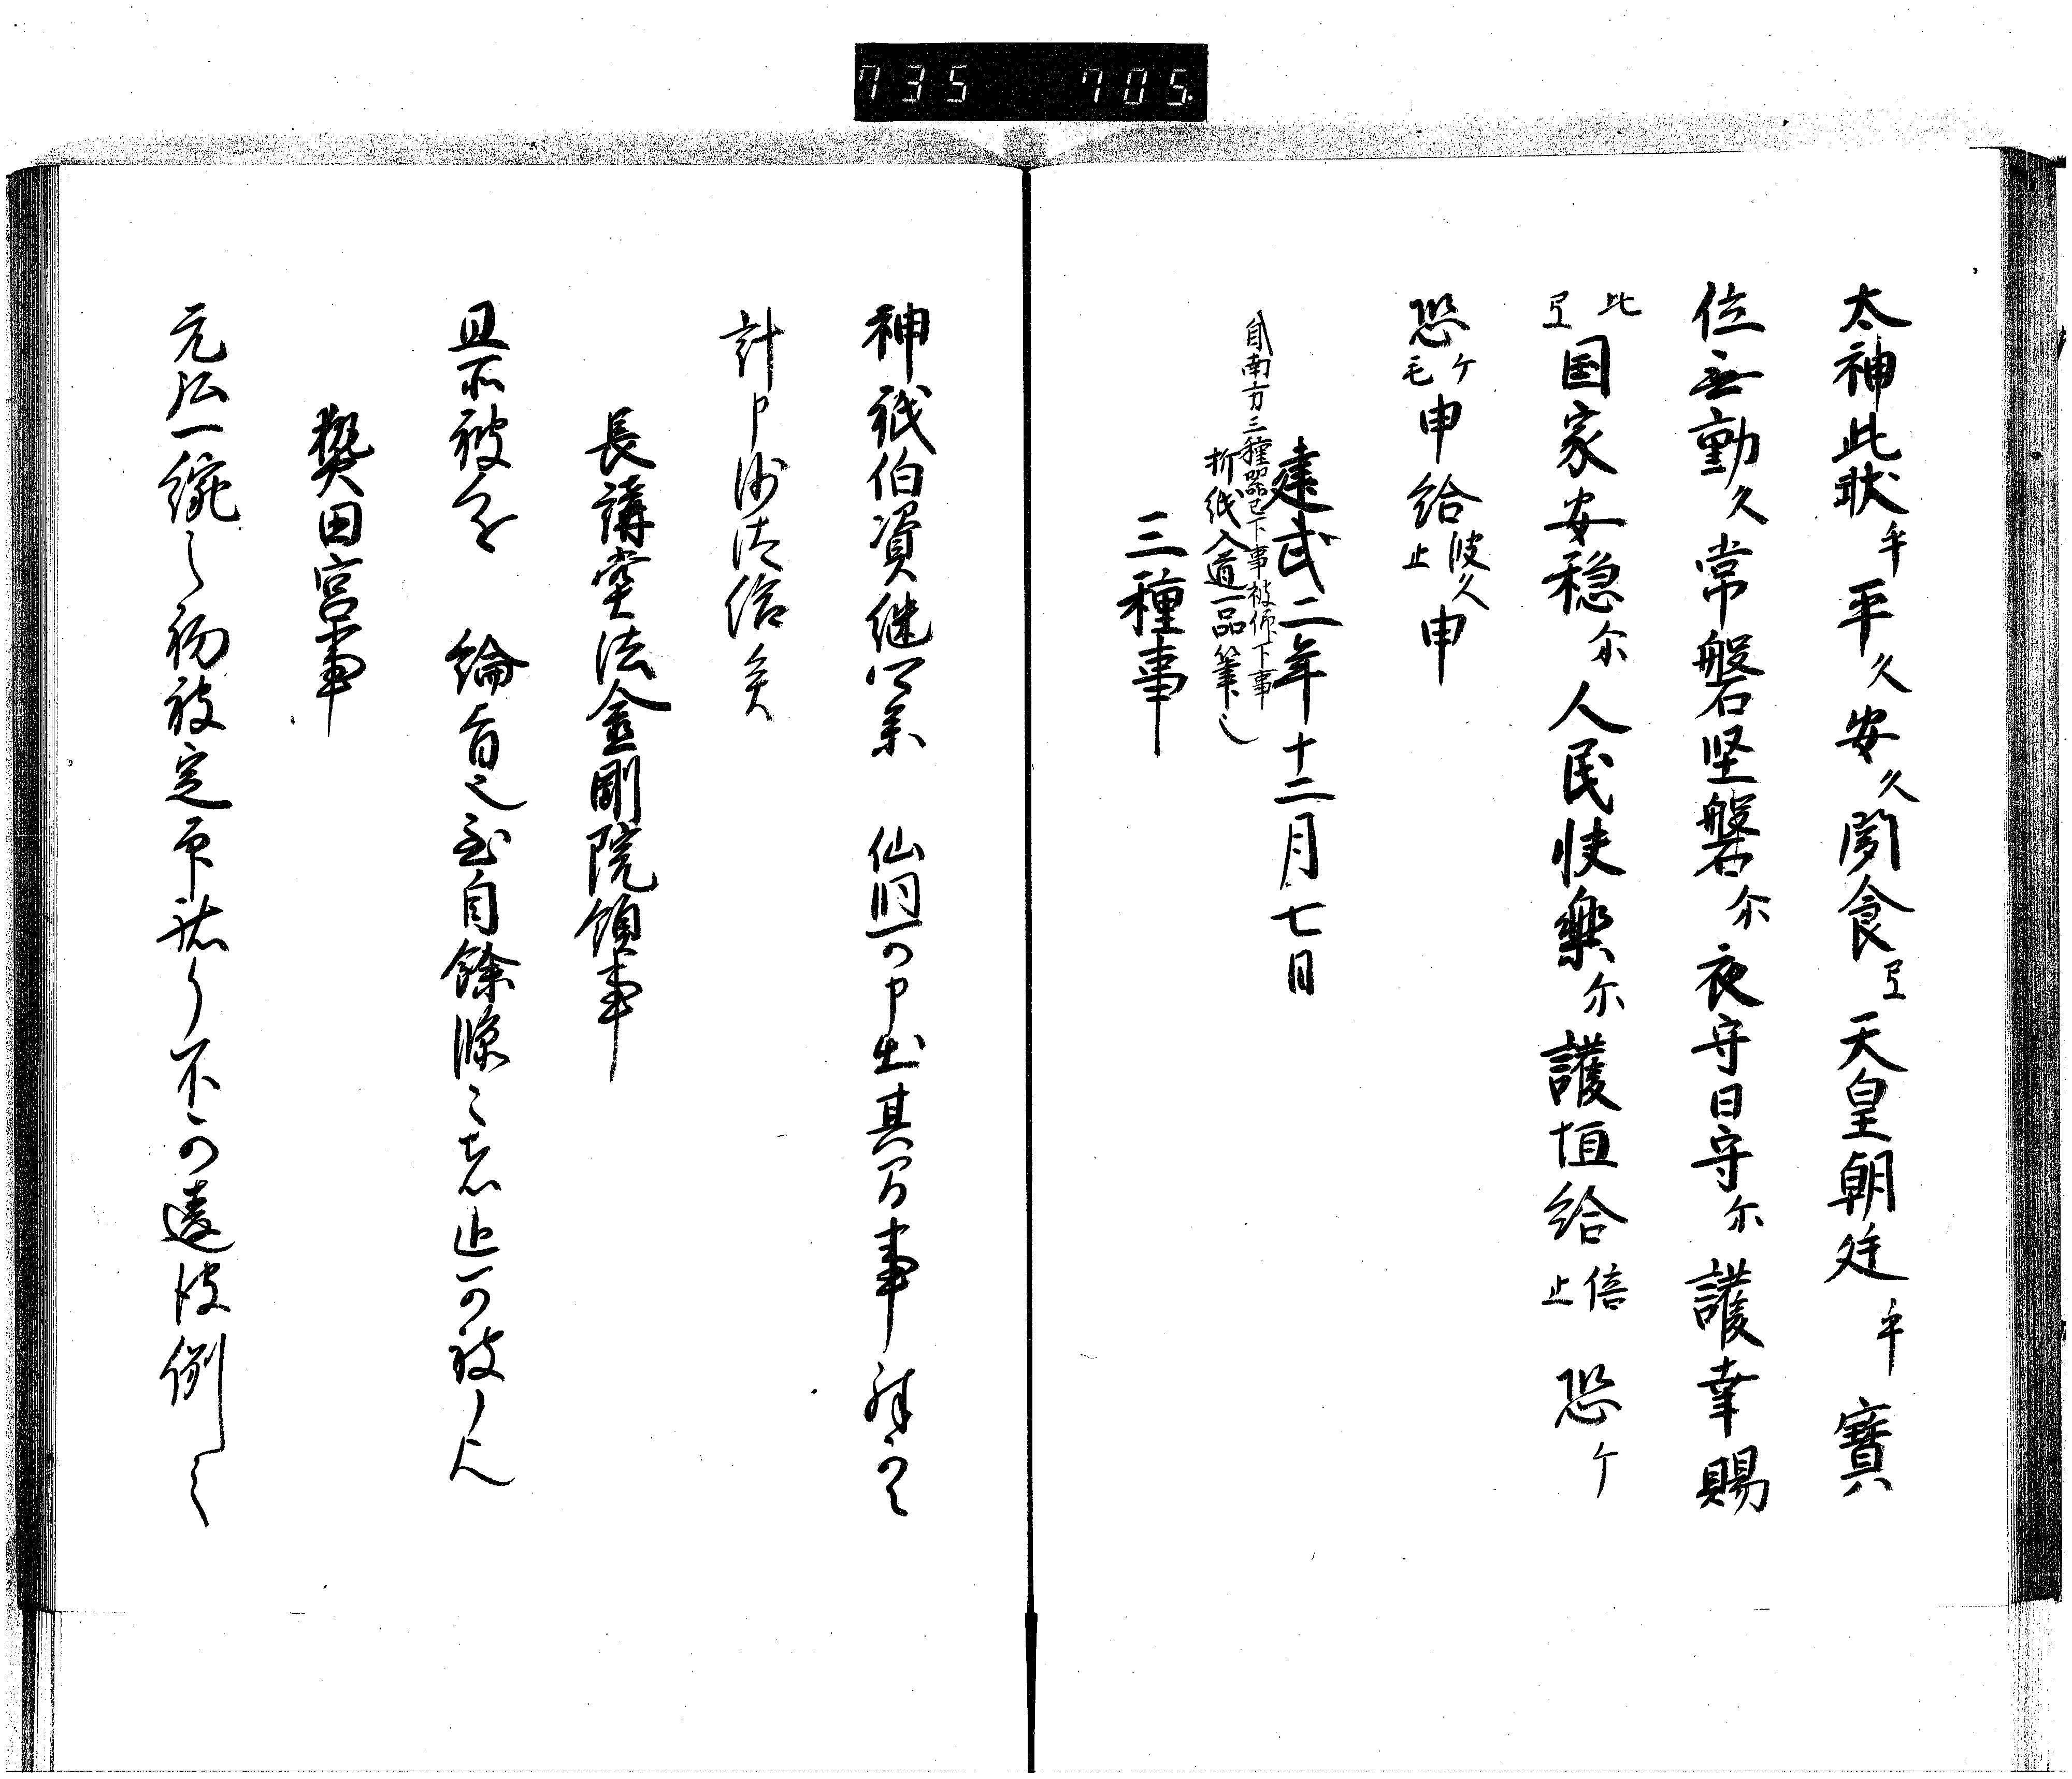 735 705.
太神此状乎平久安久聞食弖天皇朝廷乎寶
位無動久常磐堅磐尓夜守日守尓護幸賜
比弖国家安穏尓人民快樂尓護恤給倍止恐ケ
恐ケ毛申給波久止申
建武二年十二月七日
自南方三種器已下事被仰下事
折紙入道一品筆也
三種事
神祇伯資継
仙洞可申出其間事
計申沙汰給矣
長講堂法金剛院領事
且所被 綸旨也至自餘條々者
熱田宮事
元弘一統之初被定 不可違彼例